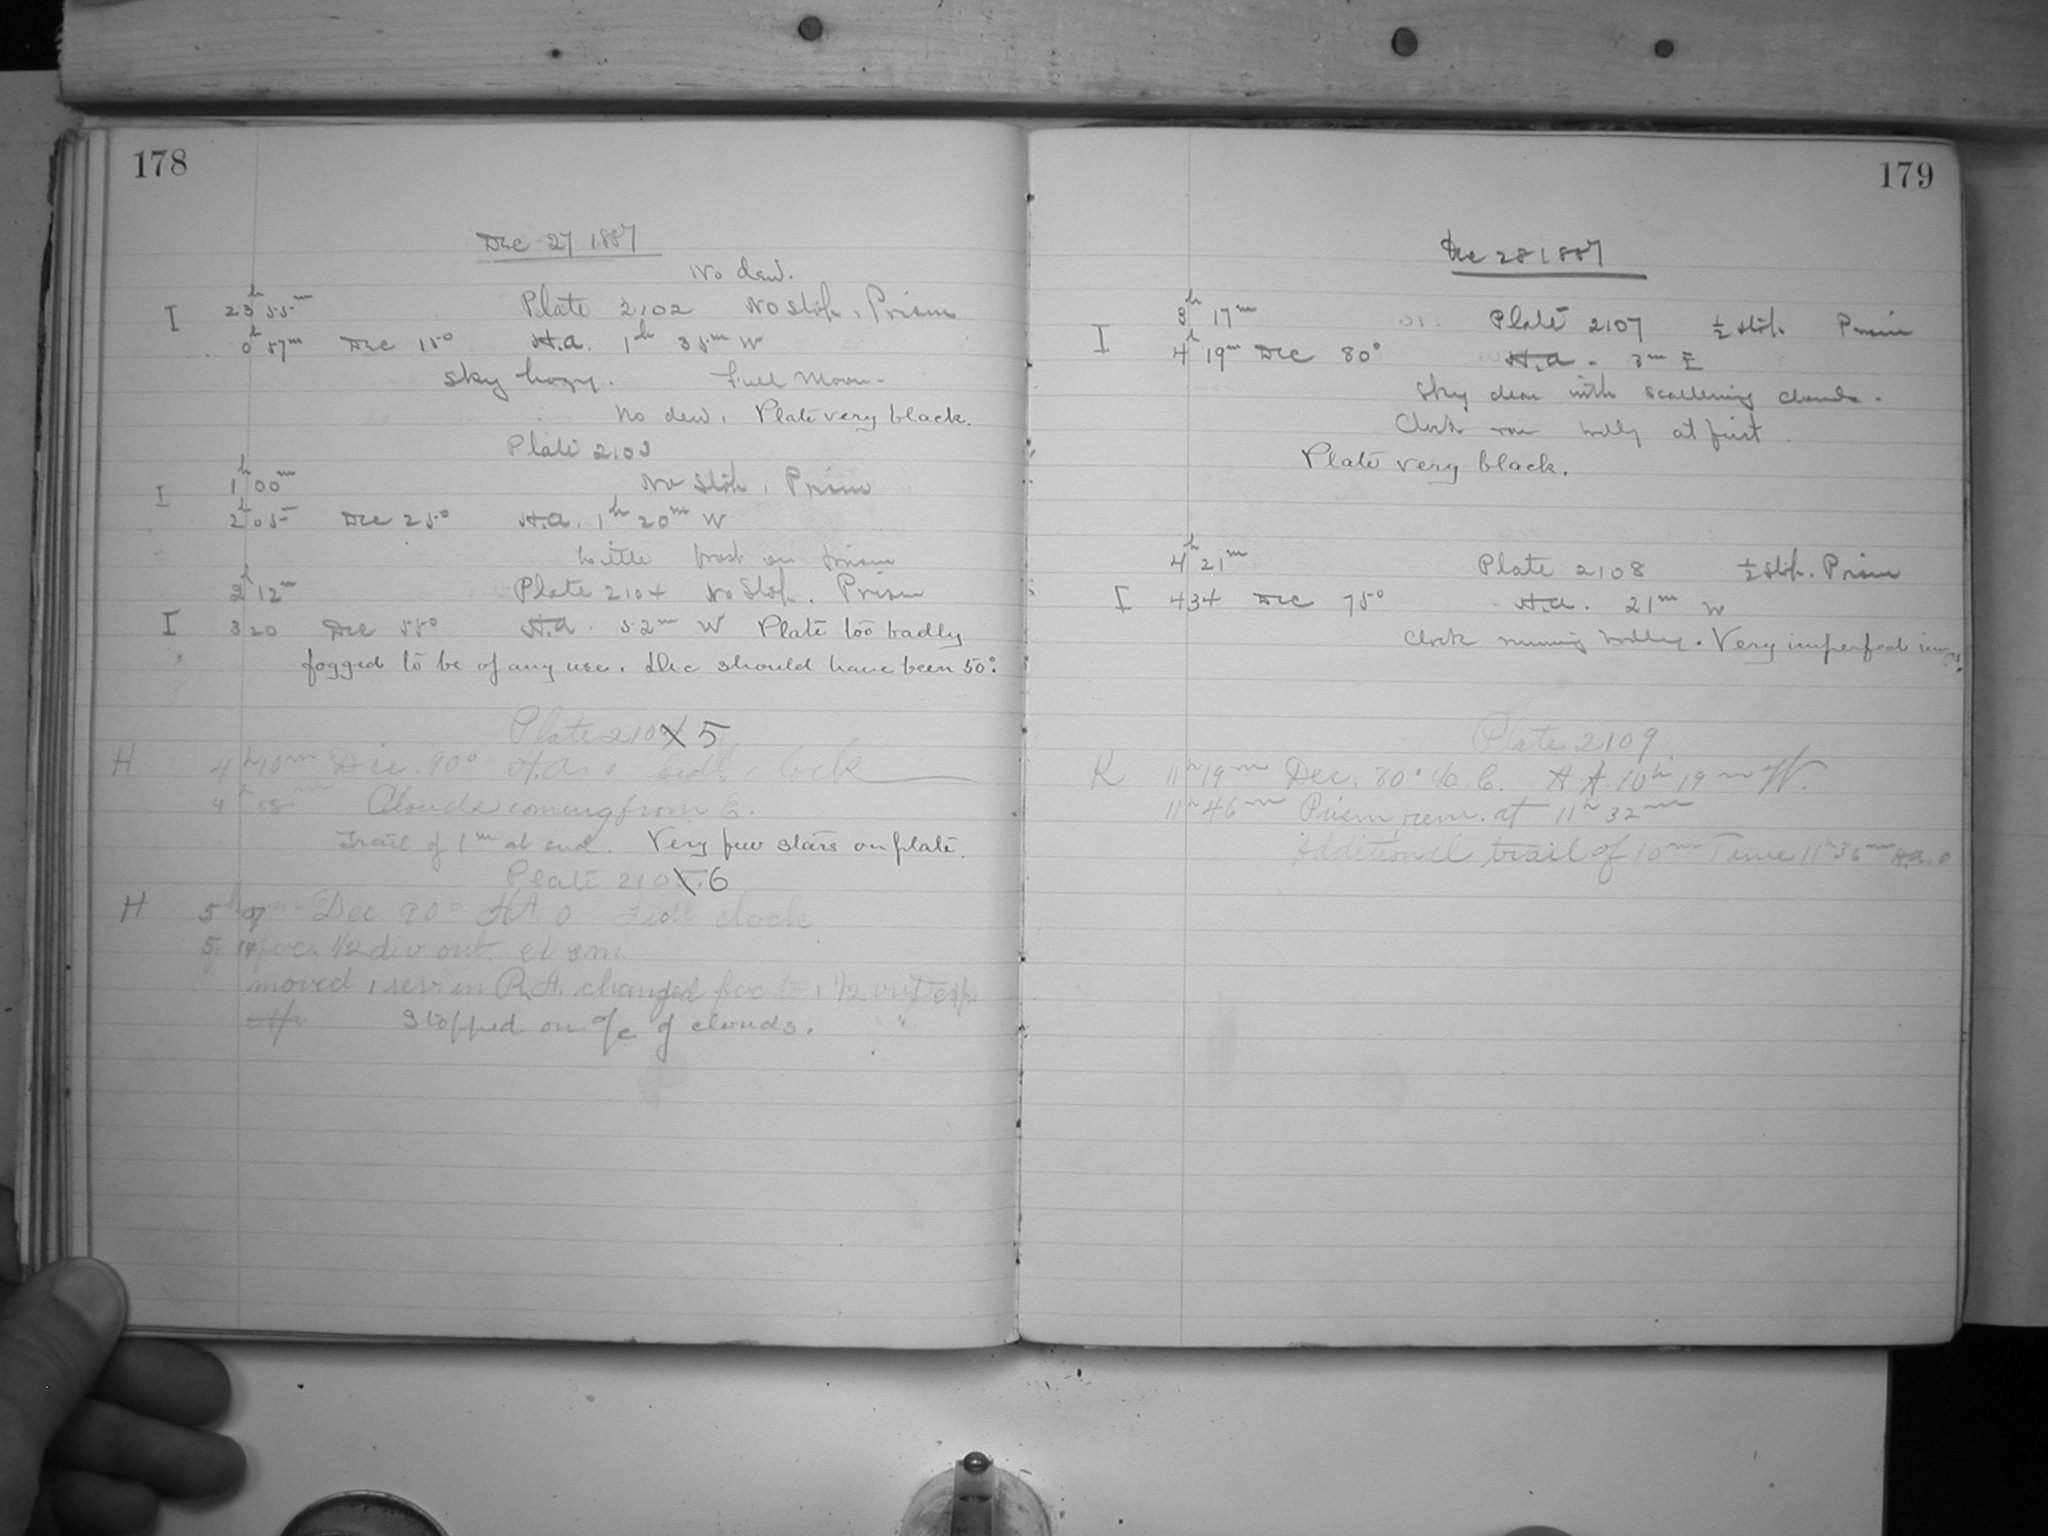 178
Dec 27 1887
No dew.
I 23h 55m Plate 2102 No stop. Prism
0h 57m Dec 15° H.a. 1h 35m W
Sky hazy. Full Moon
No dew. Plate very black.
Plate 2103
I 1h 00m No Stop, Prism
2h 05m Dec 25° H.a. 1h 20m W
Little frost on prism
2h 12m Plate 2104 No Stop. Prism
I 3 20 Dec 55° H.a. 52m W Plate too badly
fogged to be of any use. Dec should have been 50°.
Plate 2104 5
H 4h 10m Dec. 90° H.a. 0 Sidl clock
4h 58m Clouds coming from E.
Trail of 1m at end. Very few stars on plate.
Plate 2105. 6
H 5h 07m Dec 90° H.A. 0 Sidl clock
5 14 foc. 1/2 div out.
moved 1 rev. in R.A. changed foc to 1 1/2 out
Stopped on a/c of clouds.
179
Dec 28 1887
3h 17m Plate 2107 ½ stop. Prism
I 4h 19m Dec 80° H.a. 3m E
Sky clear with scattering clouds.
Clock ran badly at first.
Plate very black.
4h 21m Plate 2108 ½ stop. Prism
I 4 34 Dec 75° H.a. 21m W
Clock running badly. Very imperfect images.
Plate 2109
K 11h 19m Dec. 80° 10h 19m W.
11h 46m Prism rem. at 11h 32m
Additional trail of 10m Time 11h 36m H.a. 0